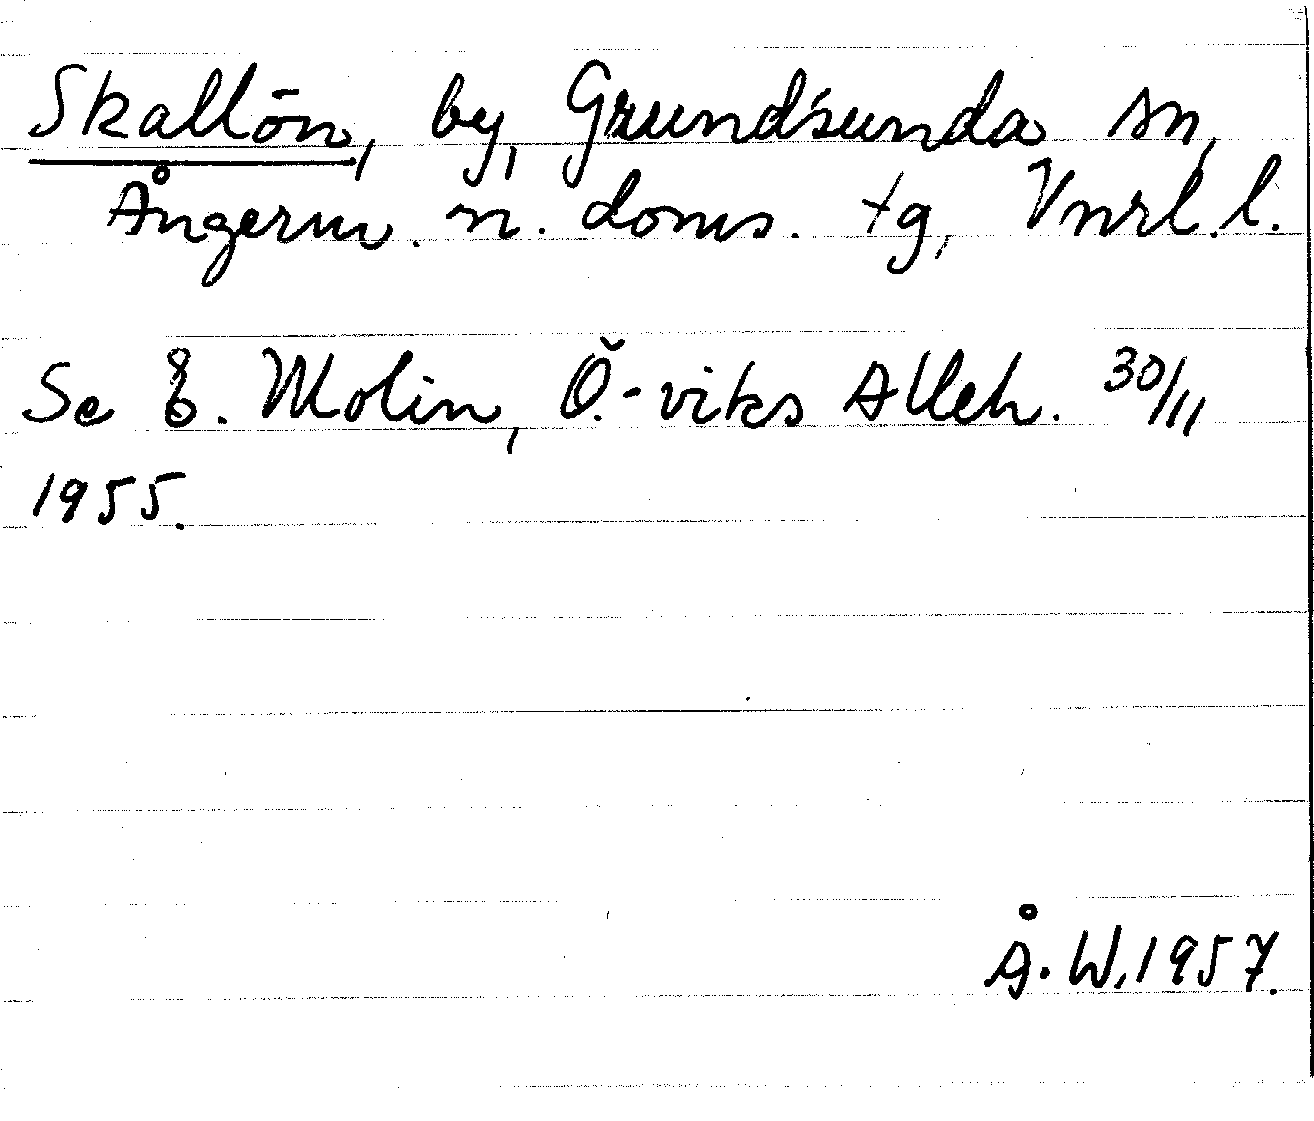 Skallön, by, Grundsunda sn,
Ångerm. n. doms. tg, Vnrl. l.
Se E. Molin, Ö.-viks Alleh. 30/11
1955.
Å. W, 1957.